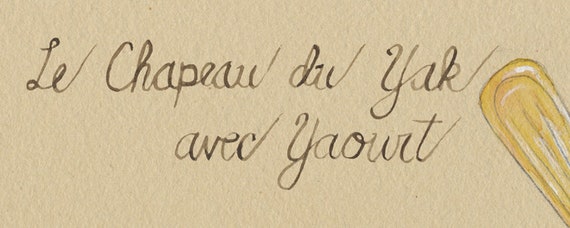 Le Chapeau du Yak
avec Yaourt